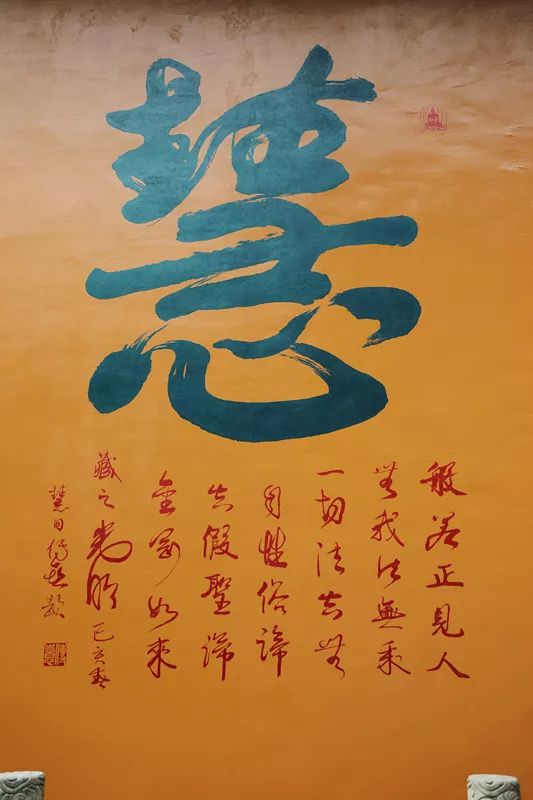 慧
般若正見人
無我法無我
一切法皆無
自性俗諦
皆假聖諦
金剛如來
藏之光明 己亥春
慧日傳喜題